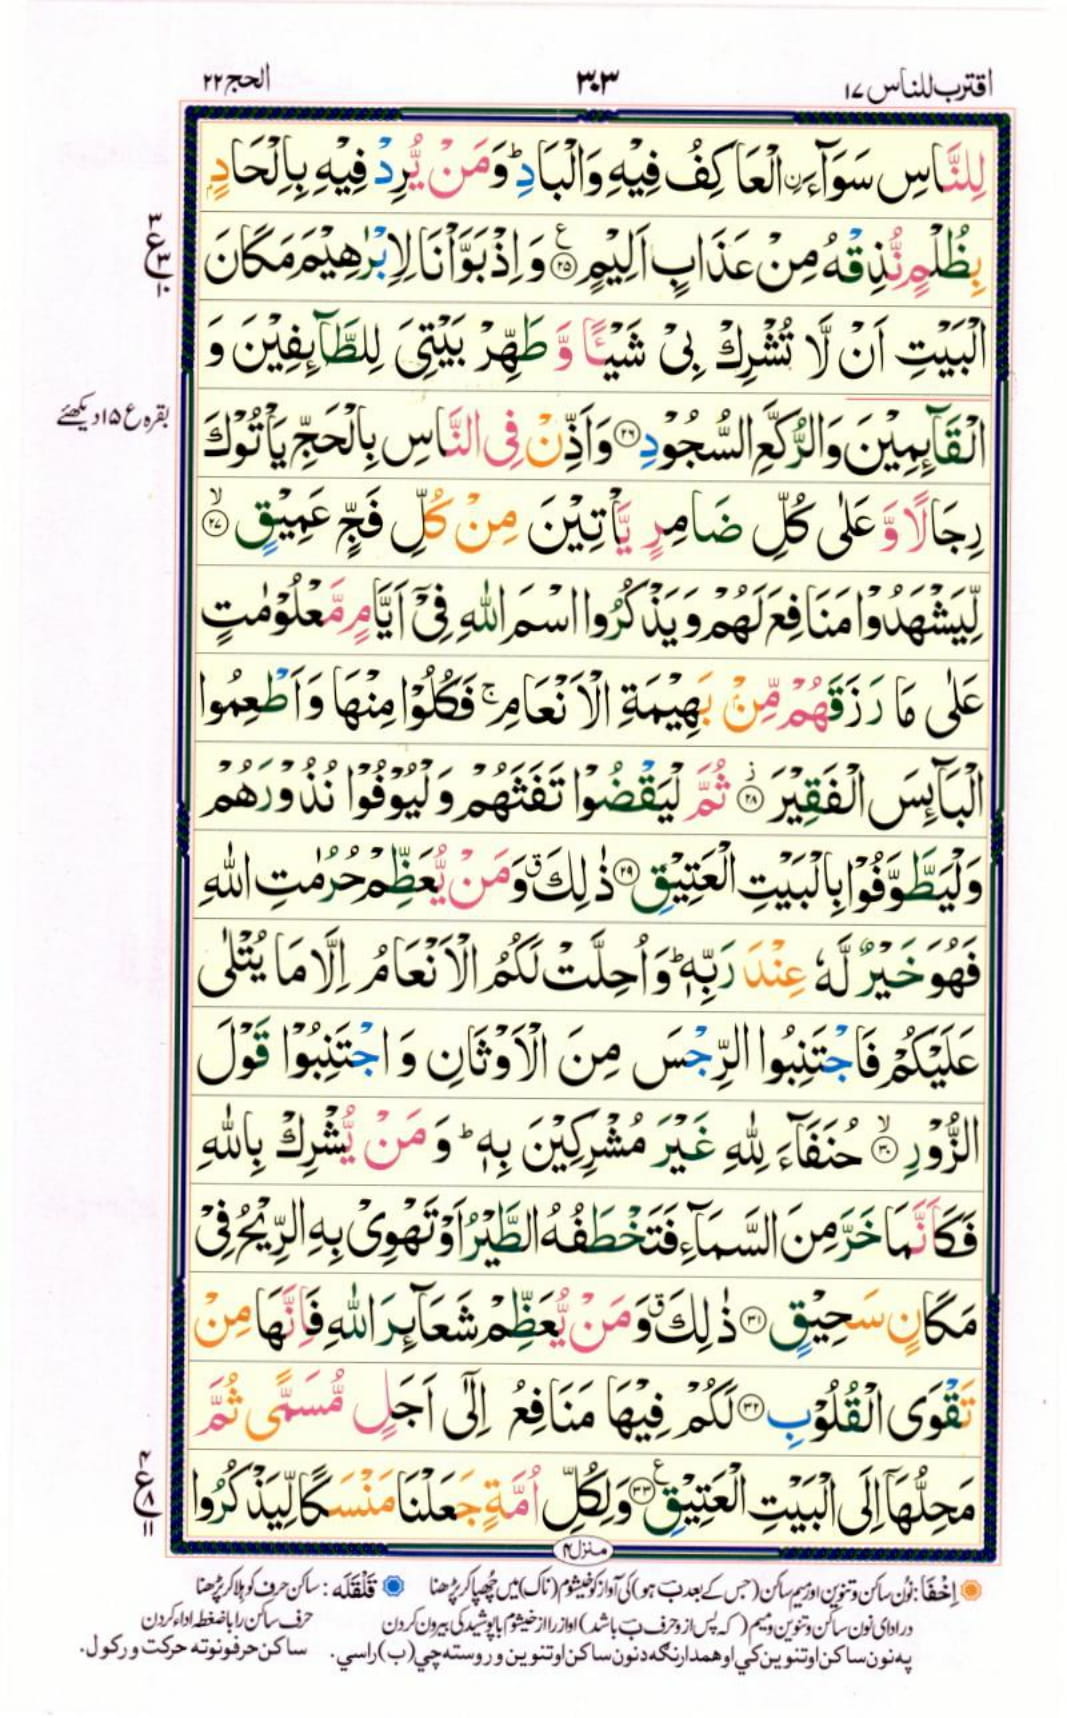 اقترب للناس ۱۷
۳۰۳
الحج ۲۲
لِلنَّاسِ سَوَآءَ ۨالْعَاكِفُ فِيْهِ وَالْبَادِ ؕ وَمَنْ يُّرِدْ فِيْهِ بِاِلْحَادٍۭ
بِظُلْمٍ نُّذِقْهُ مِنْ عَذَابٍ اَلِيْمٍ ۲۵ؑ وَاِذْ بَوَّاْنَا لِاِبْرٰهِيْمَ مَكَانَ
۳ ع ۳ ۱۰
الْبَيْتِ اَنْ لَّا تُشْرِكْ بِىْ شَيْـًٔا وَّ طَهِّرْ بَيْتِىَ لِلطَّآئِفِيْنَ وَ
الْقَآئِمِيْنَ وَالرُّكَّعِ السُّجُوْدِ ۲۶ وَاَذِّنْ فِى النَّاسِ بِالْحَجِّ يَاْتُوْكَ
بقرہ ع ۱۵ دیکھئے
رِجَالًا وَّ عَلٰى كُلِّ ضَامِرٍ يَّاْتِيْنَ مِنْ كُلِّ فَجٍّ عَمِيْقٍ ۲۷ۙ
لِّيَشْهَدُوْا مَنَافِعَ لَهُمْ وَيَذْكُرُوا اسْمَ اللّٰهِ فِىْۤ اَيَّامٍ مَّعْلُوْمٰتٍ
عَلٰى مَا رَزَقَهُمْ مِّنْۢ بَهِيْمَةِ الْاَنْعَامِ ۚ فَكُلُوْا مِنْهَا وَاَطْعِمُوا
الْبَآئِسَ الْفَقِيْرَ ۲۸ؗ ثُمَّ لْيَقْضُوْا تَفَثَهُمْ وَلْيُوْفُوْا نُذُوْرَهُمْ
وَلْيَطَّوَّفُوْا بِالْبَيْتِ الْعَتِيْقِ ۲۹ ذٰلِكَ ۗ وَمَنْ يُّعَظِّمْ حُرُمٰتِ اللّٰهِ
فَهُوَ خَيْرٌ لَّهٗ عِنْدَ رَبِّهٖ ؕ وَاُحِلَّتْ لَكُمُ الْاَنْعَامُ اِلَّا مَا يُتْلٰى
عَلَيْكُمْ فَاجْتَنِبُوا الرِّجْسَ مِنَ الْاَوْثَانِ وَاجْتَنِبُوْا قَوْلَ
الزُّوْرِ ۳۰ۙ حُنَفَآءَ لِلّٰهِ غَيْرَ مُشْرِكِيْنَ بِهٖ ؕ وَمَنْ يُّشْرِكْ بِاللّٰهِ
فَكَاَنَّمَا خَرَّ مِنَ السَّمَآءِ فَتَخْطَفُهُ الطَّيْرُ اَوْ تَهْوِىْ بِهِ الرِّيْحُ فِىْ
مَكَانٍ سَحِيْقٍ ۳۱ ذٰلِكَ ۗ وَمَنْ يُّعَظِّمْ شَعَآئِرَ اللّٰهِ فَاِنَّهَا مِنْ
تَقْوَى الْقُلُوْبِ ۳۲ لَكُمْ فِيْهَا مَنَافِعُ اِلٰٓى اَجَلٍ مُّسَمًّى ثُمَّ
مَحِلُّهَاۤ اِلَى الْبَيْتِ الْعَتِيْقِ ۳۳ؑ وَلِكُلِّ اُمَّةٍ جَعَلْنَا مَنْسَكًا لِّيَذْكُرُوا
۴ ع ۸ ۱۱
منزل ۴
اِخْفَا: نُون ساکن و تنوین اور میم ساکن (جس کے بعد بَ ہو) کی آواز کو خیشوم (ناک) میں چُھپا کر پڑھنا
قَلْقَلَه: ساکن حرف کو ہلا کر پڑھنا
در ادای نون ساکن و تنوین و میم (که پس از و حرف بَ باشد) اواز را از خیشوم با پوشیدگی بیرون کردن
حرف ساکن را با ضغطه اداء کردن
په نون ساکن او تنوین کي او همدارنګه د نون ساکن او تنوین وروسته چي (ب) راسي.
ساکن حرفونو ته حرکت ورکول.